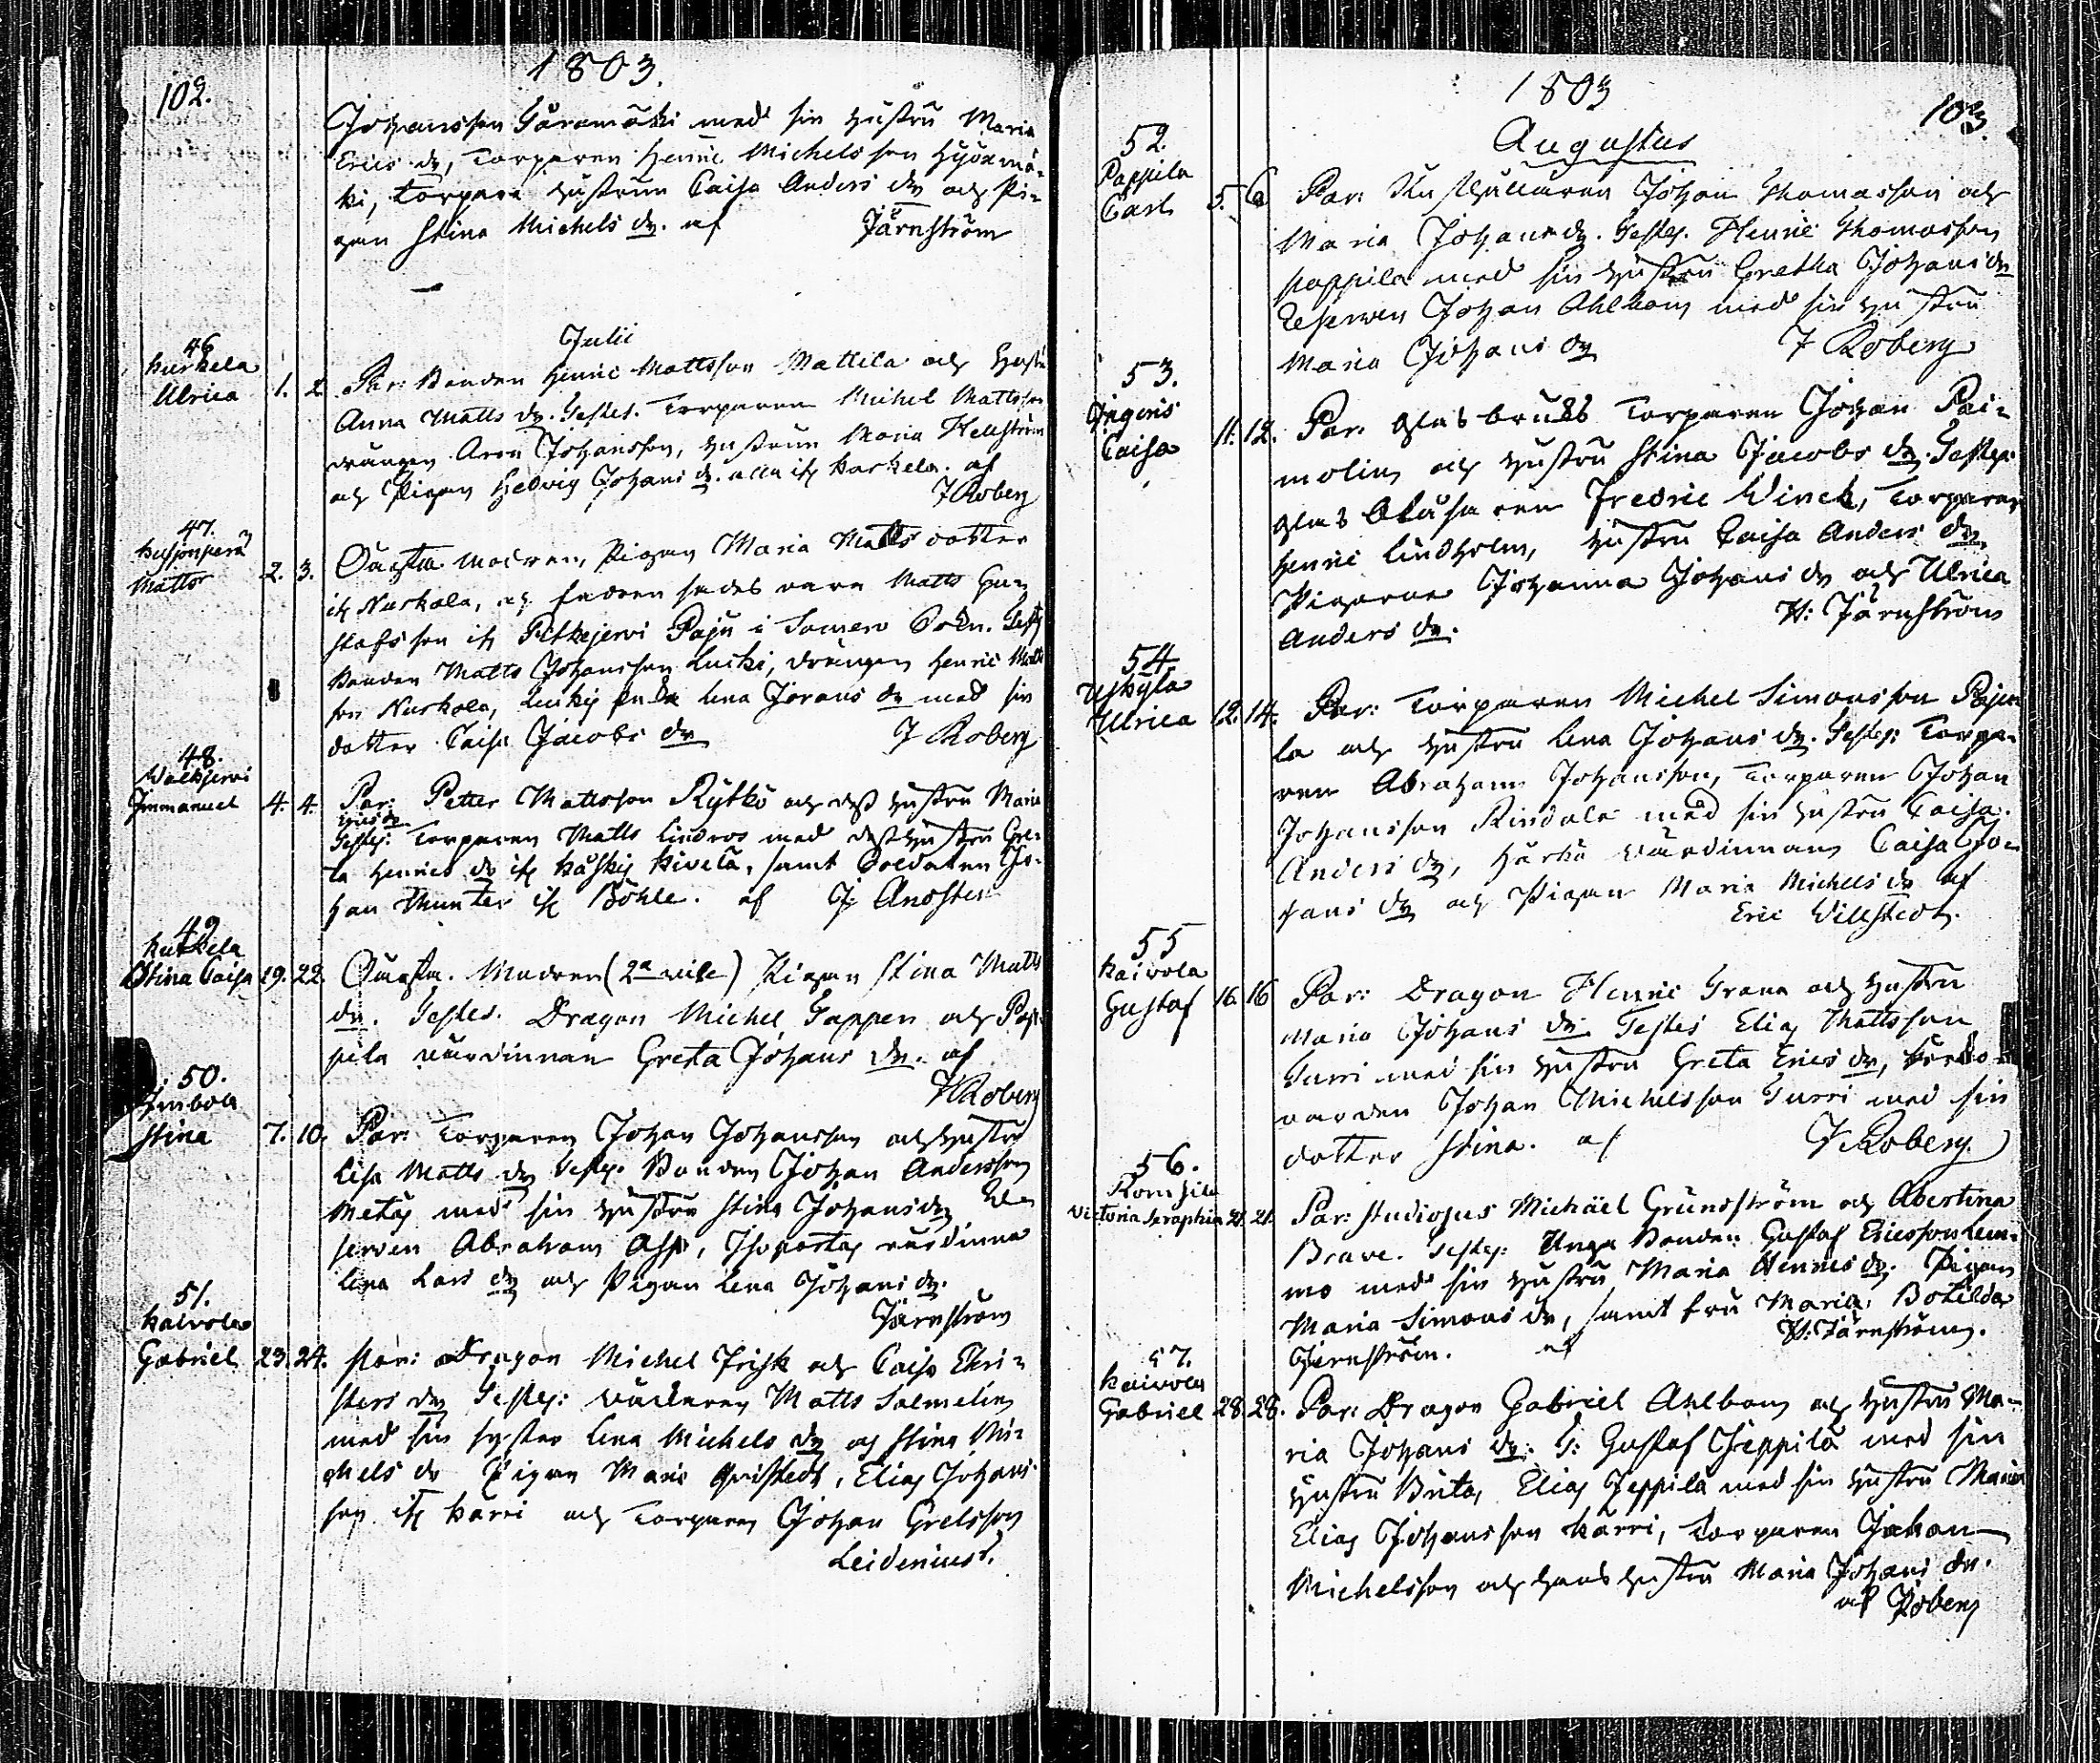 102.
1803.
Johansson Säramäki med sin hustru Maria
Erics dr, Torparen Henric Michelsson Hyövmä-
ki, Torpare hustrun Caisa Anders dr och Pi-
gan Stina Michels dr. af Järnström
Julii
46
Kurkela
Ulrica 1. 2. Par: Bonden Henric Mattsson Mattila och Hustr
Anna Matts dr. Testes. Torparen Michel Mattsson
drängen Aron Johansson, hustrun Maria Hellström
och Pigan Hedvig Johans dr. alla ifr Karkela. af
J Roberg
47.
Matts 2. 3. Oägta Modren, Pigan Maria Matts dotter
ifr Nurkola, och fadren sades vara Matts Gu-
stafsson ifr Pitkejervi Paju i Somero Sokn. Test
Bonden Matts Johansson Lucki, drängen Henric Matts
son Nurkola, enka Lena Jörans dr med sin
dotter Caisa Jacobs dr J Roberg
48.
Walkjervi
Immanuel 4. 4. Par: Petter Mattsson Rytkö och dess hustru Maria
Erics dr
Testes: Torparen Matts Lindros med dess hustru Gre-
ta Henrics dr ifr Kivelä, samt Soldaten Jo-
han Munter ifr Böhle. af
49
Stina Caisa 19. 22. Oägta. Modren (2a vice) Pigan Stina Matts
dr. Testes. Dragon Michel Tappen och Pap-
pila värdinnan Greta Johans dr. af
J Roberg
50.
Stina 7. 10. Par: Torparen Johan Johansson och hustru
Lisa Matts dr Testes. Bonden Johan Andersson
med sin hustru Stina Johans dr Re-
serven Abraham Asp, värdinna
Lena Lars dr och Pigan Lena Johans dr.
Järnström
51.
Kaivola
Gabriel 23. 24. Par: Dragon Michel Frisk och Caisa Chri-
sters dr Testes: Matts Salmelin
med sin syster Lena Michels dr och Stina Mi-
chels dr Pigan Maria Qvistedt, Elias Johans-
son ifr Karri och Torparen Johan Grelsson
Leidenius.
1803
103
Augustus
52.
Pappila
Carl 5. 6 Par: Johan Thomasson och
Maria Johans dr. Testes. Henric Thomasson
Pappila med sin hustru Gretha Johans dr
Reserven Johan Ahlbom med sin hustru
Maria Johans dr J Roberg
53.
Caisa 11. 12. Par. Glasbruks Torparen Johan Pai-
molin och hustru Stina Jacobs dr. Testes.
Glas blåsaren Fredric Winck, Torparen
Henric Lindholm, hustru Caisa Anders dr
Pigorna Johanna Johans dr och Ulrica
Anders dr. H: Järnström
54.
Ulrica 12. 14. Par: Torparen Michel Simonsson
la och hustru Lena Johans dr. Testes: Torpa-
ren Abraham Johansson, Torparen Johan
Johansson Rindala med sin hustru Caisa
Anders dr, värdinnan Caisa Jo-
hans dr och Pigan Maria Michels dr af
Eric Willstedt.
55
Kaivola
Gustaf 16. 16 Par: Dragon Henric Grann och hustru
Maria Johans dr Testes Elias Mattsson
Surri med sin hustru Greta Erics dr,
Johan Michelsson Surri med sin
dotter Stina. af J Roberg
56.
Victoria Seraphia 21. 21. Par: Studiosus Michäel Grundström och Abertina
Brave. Testes: Unga Bonden Gustaf Ericsson Lem-
mo med sin hustru Maria Henrics dr. Pigan
Maria Simons dr, samt fru Maria Botilda
Jernström. af H: Järnström.
57.
Kaivola
Gabriel 28. 28. Par: Dragon Gabriel Ahlbom och hustru Ma-
ria Johans dr. T: Gustaf Jeppilä med sin
hustru Brita, Elias Jeppilä med sin hustru Maria
Elias Johansson Kärri, Torparen Johan
Michelsson och hans hustru Maria Johans dr.
af Roberg